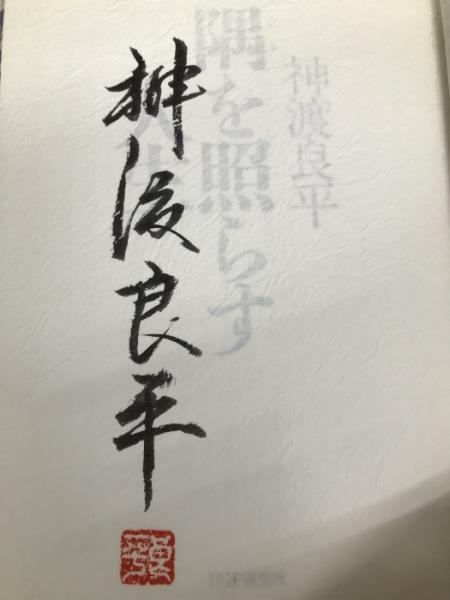 神渡良平
隅を照らす
神渡良平